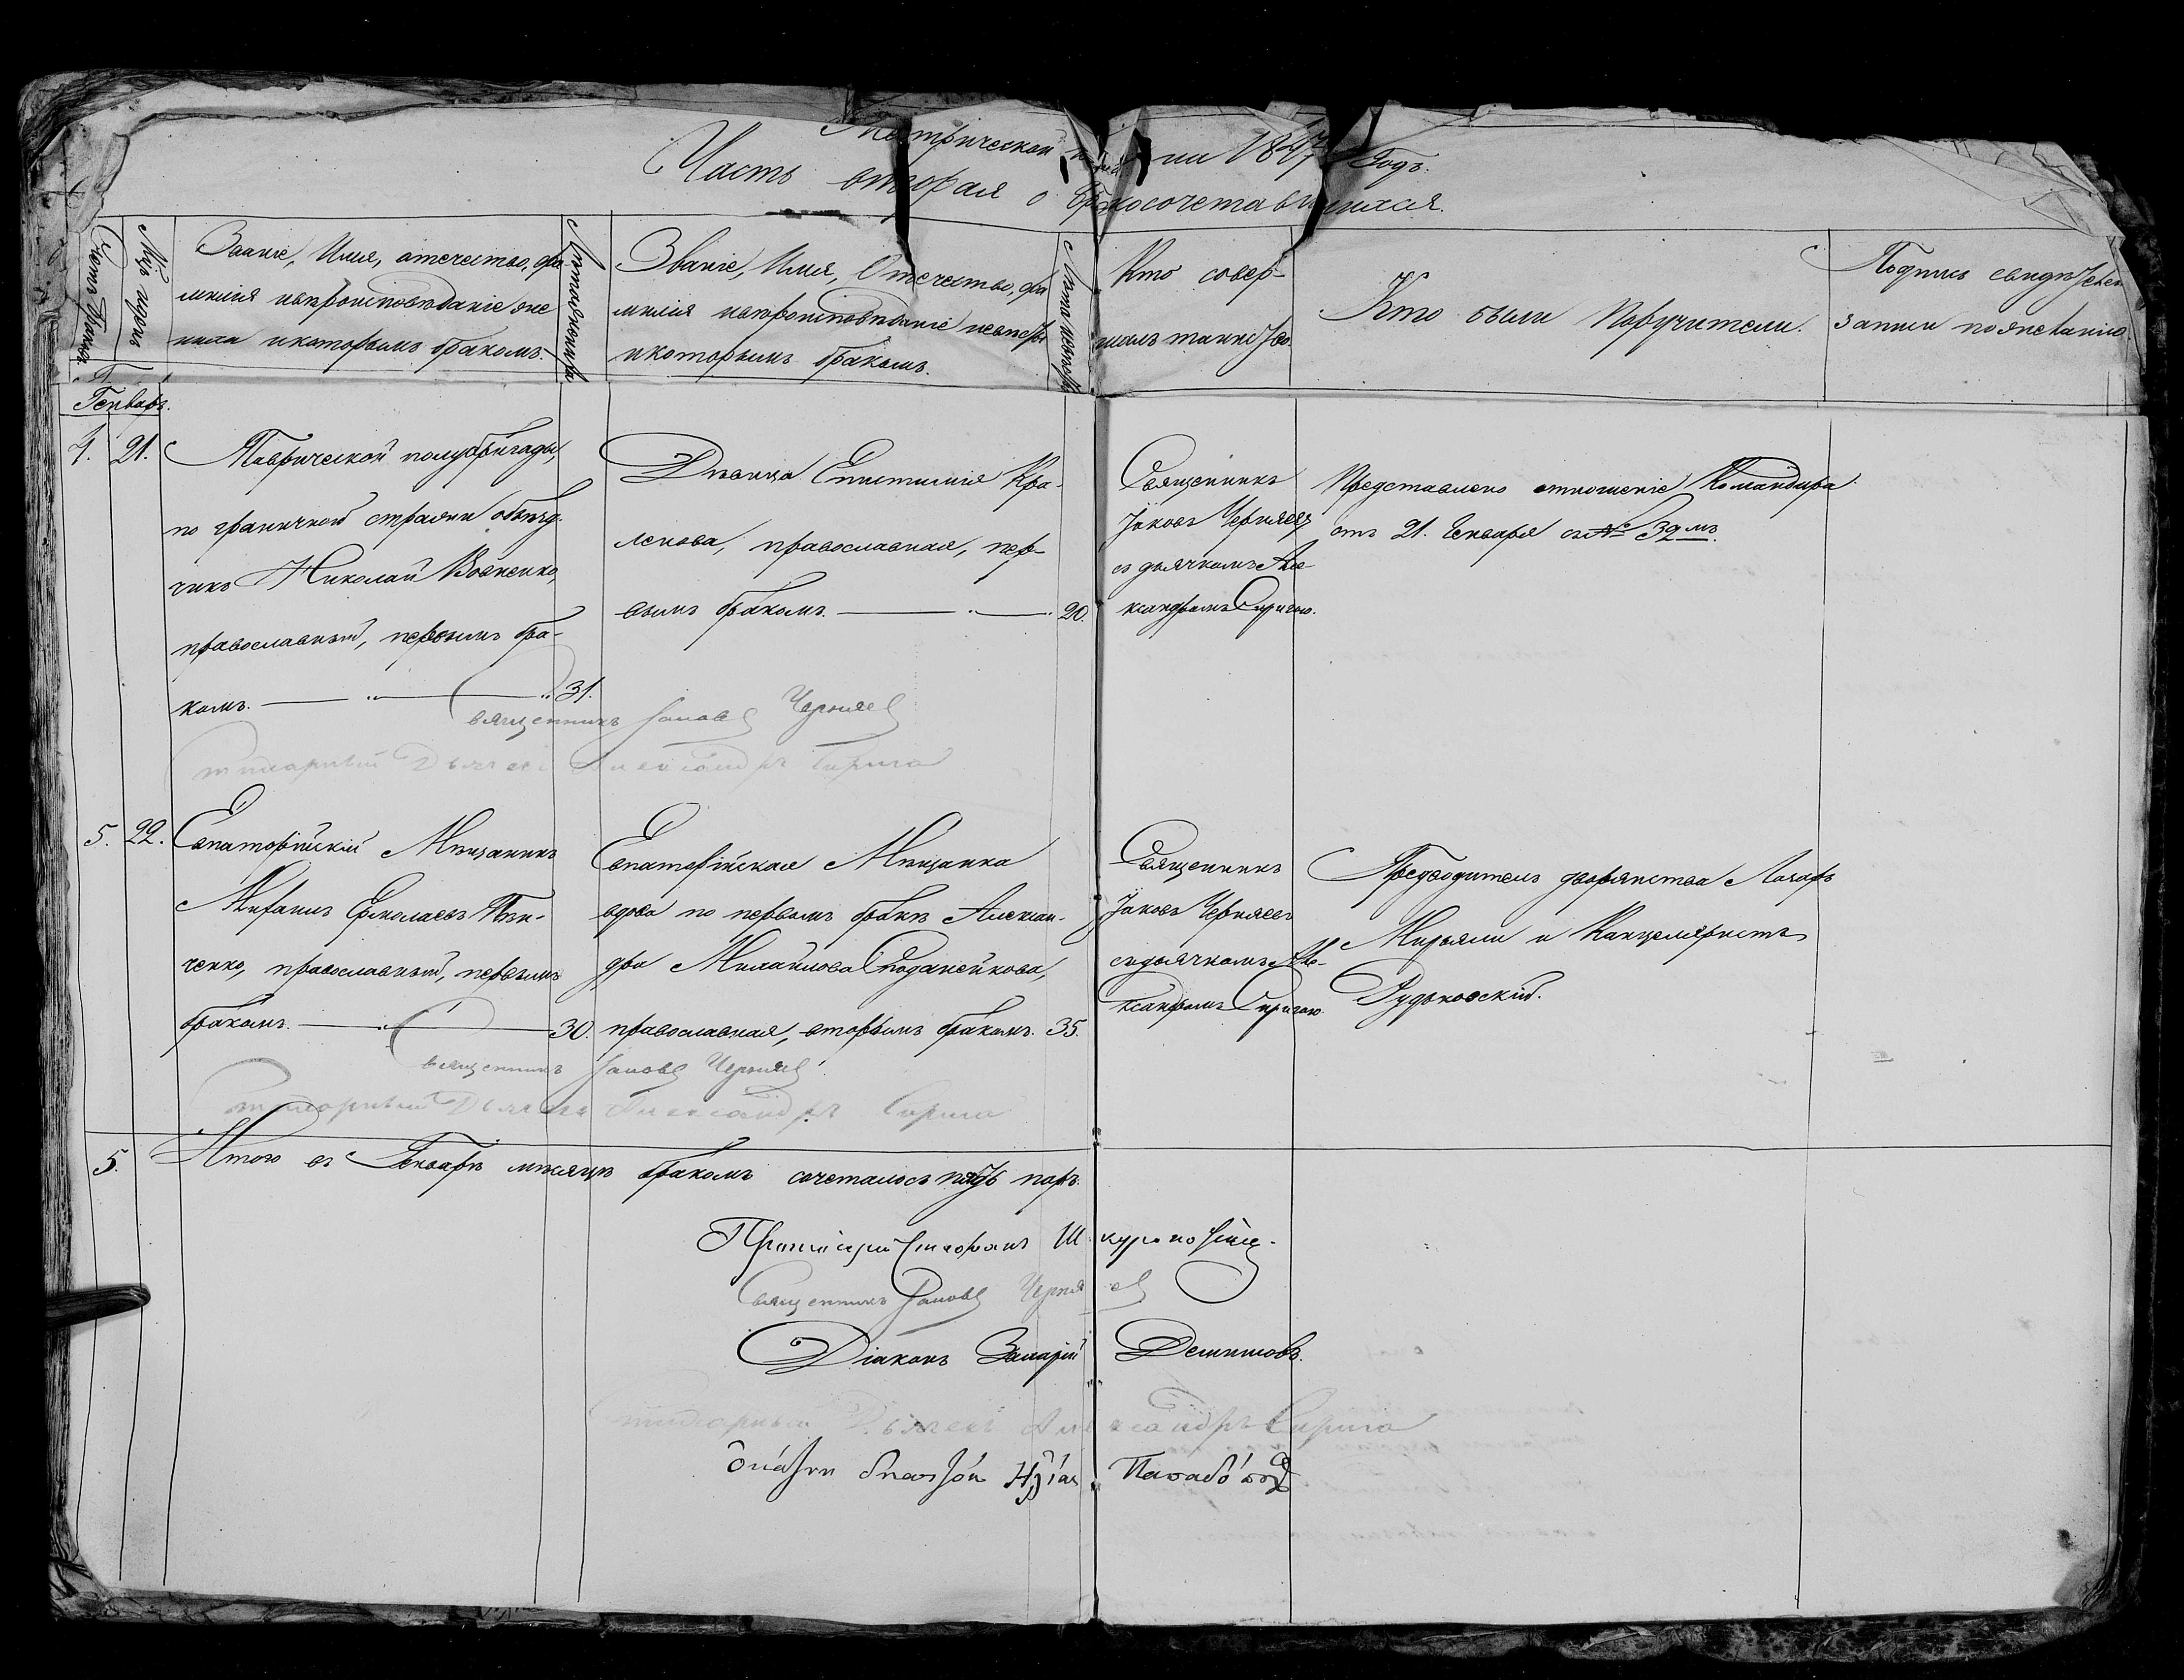 Метрической на 1847 Годъ.
Часть вторая о бракосочетавшихся.
Счетъ браков
Мѣс. и день
Званіе, Имя, отечество, фа-
милія и вѣроисповѣданіе же
ниха и которымъ бракомъ.
Лѣта жениха
Званіе, Имя, Отечество, фа
милія и вѣроисповѣданіе невѣсты
и которымъ бракомъ.
Лѣта невѣсты
Кто совер-
шалъ таинство
Кто были Поручители.
Подпись свидѣтелей
записи по желанію.
Генварь.
4. 21.
Таврической полубригады,
пограничной стражи объѣзд
чикъ Николай Вовненко,
православный, первымъ бра-
комъ. 31.
Дѣвица Епистимія Кра-
ленова, православная, пер-
вымъ бракомъ. 20.
Священникъ
Іаковъ Черняев
съ дьячкомъ Але-
ксандромъ Сиригою.
Представлено отношеніе Командира
отъ 21. Генваря за № 32 мъ.
Священникъ Іаковъ Черняевъ
Дьячекъ Александръ Сирига
5. 22.
Евпаторійскій Мѣщанинъ
Ермолаевъ
ченко, православный, первымъ
бракомъ. 30.
Евпаторійская Мѣщанка
вдова по первомъ бракѣ Алексан-
дра Михайлова
православная, вторымъ бракомъ. 35.
Священникъ
Іаковъ Черняевъ
съ дьячкомъ Але-
ксандромъ Сиригою
Предводитель дворянства Лазарь
и Канцеляристъ
Рудьковскій.
Священникъ Іаковъ Черняевъ
Дьячекъ Александръ Сирига
5. Итого въ Генварѣ мѣсяцѣ бракомъ сочеталось пять паръ.
Протоіерей Стефанъ
Священникъ Іаковъ Черняевъ
Діаконъ Захарій
Дьячекъ Александръ Сирига
Παπαδόπουλος